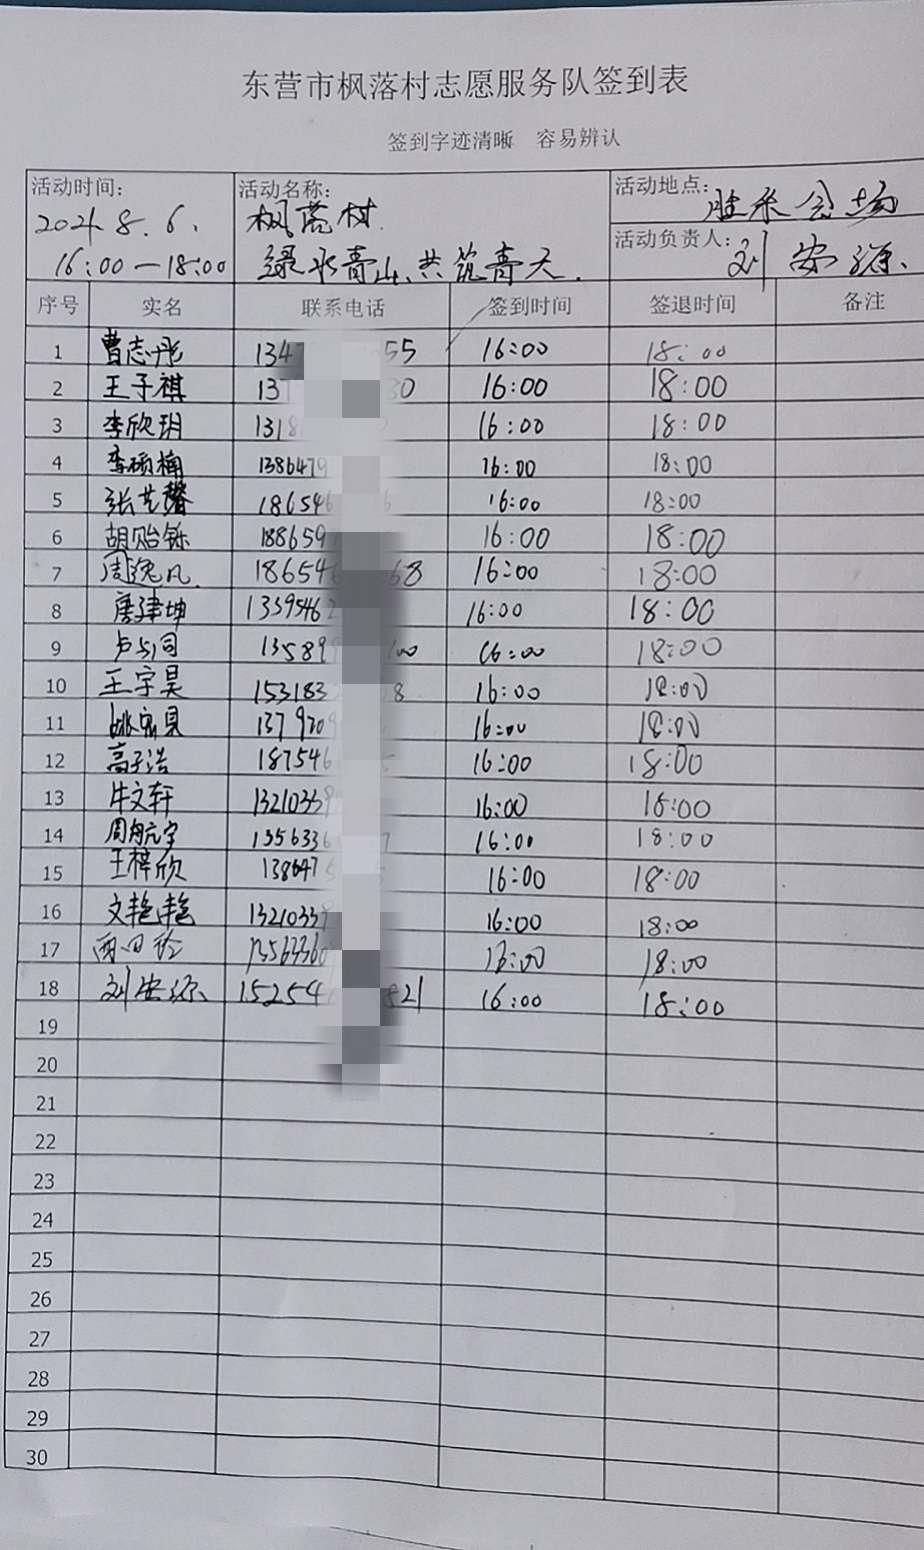 东营市枫落村志愿服务队签到表
签到字迹清晰 容易辨认
活动时间: 活动名称: 活动地点: 胜采会场
2024.8.6. 枫落村 活动负责人: 刘安源
16:00—18:00 绿水青山、共筑青天.
序号 实名 联系电话 签到时间 签退时间 备注
1 曹志彤 134 55 16:00 18:00
2 王子祺 137 30 16:00 18:00
3 李欣玥 1318 16:00 18:00
4 李硕楠 1386479 16:00 18:00
5 张艺馨 186546 6 16:00 18:00
6 胡贻铄 188659 16:00 18:00
7 周逸凡 186546 68 16:00 18:00
8 唐建坤 1339546 16:00 18:00
9 13589 00 16:00 18:00
10 王宇昊 153183 8 16:00 18:00
11 137920 16:00 18:00
12 高子浩 187546 16:00 18:00
13 牛文轩 13210339 16:00 18:00
14 周舟亢宇 1356336 7 16:00 18:00
15 王梓欣 138647 16:00 18:00
16 文艳艳 13210339 16:00 18:00
17 1356336 16:00 18:00
18 刘安源 152546 821 16:00 18:00
19
20
21
22
23
24
25
26
27
28
29
30